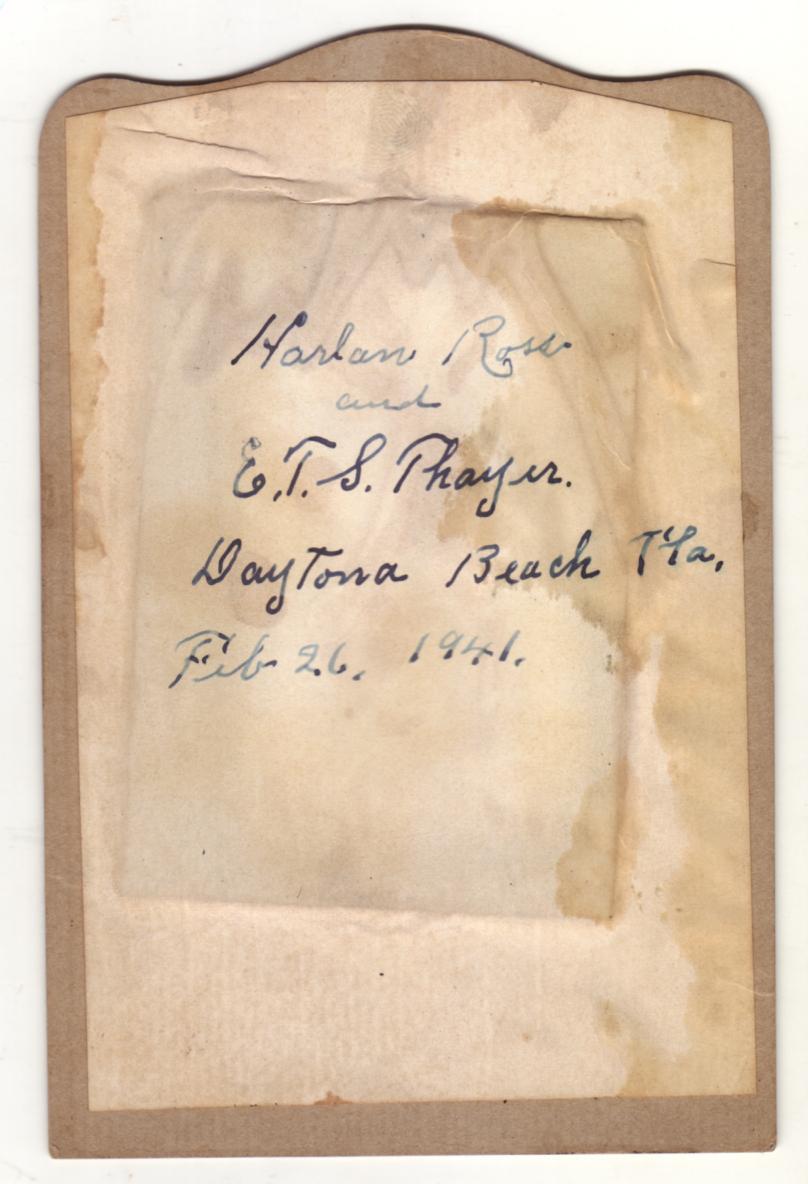 Harlan Ross
and
E.T.S. Thayer.
Daytona Beach Fla,
Feb 26, 1941.